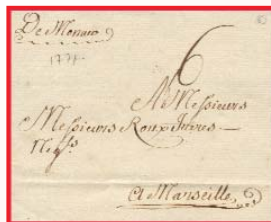 De Monaco
1771
6
A Messieurs
Messieurs Roux freres
A Marseille